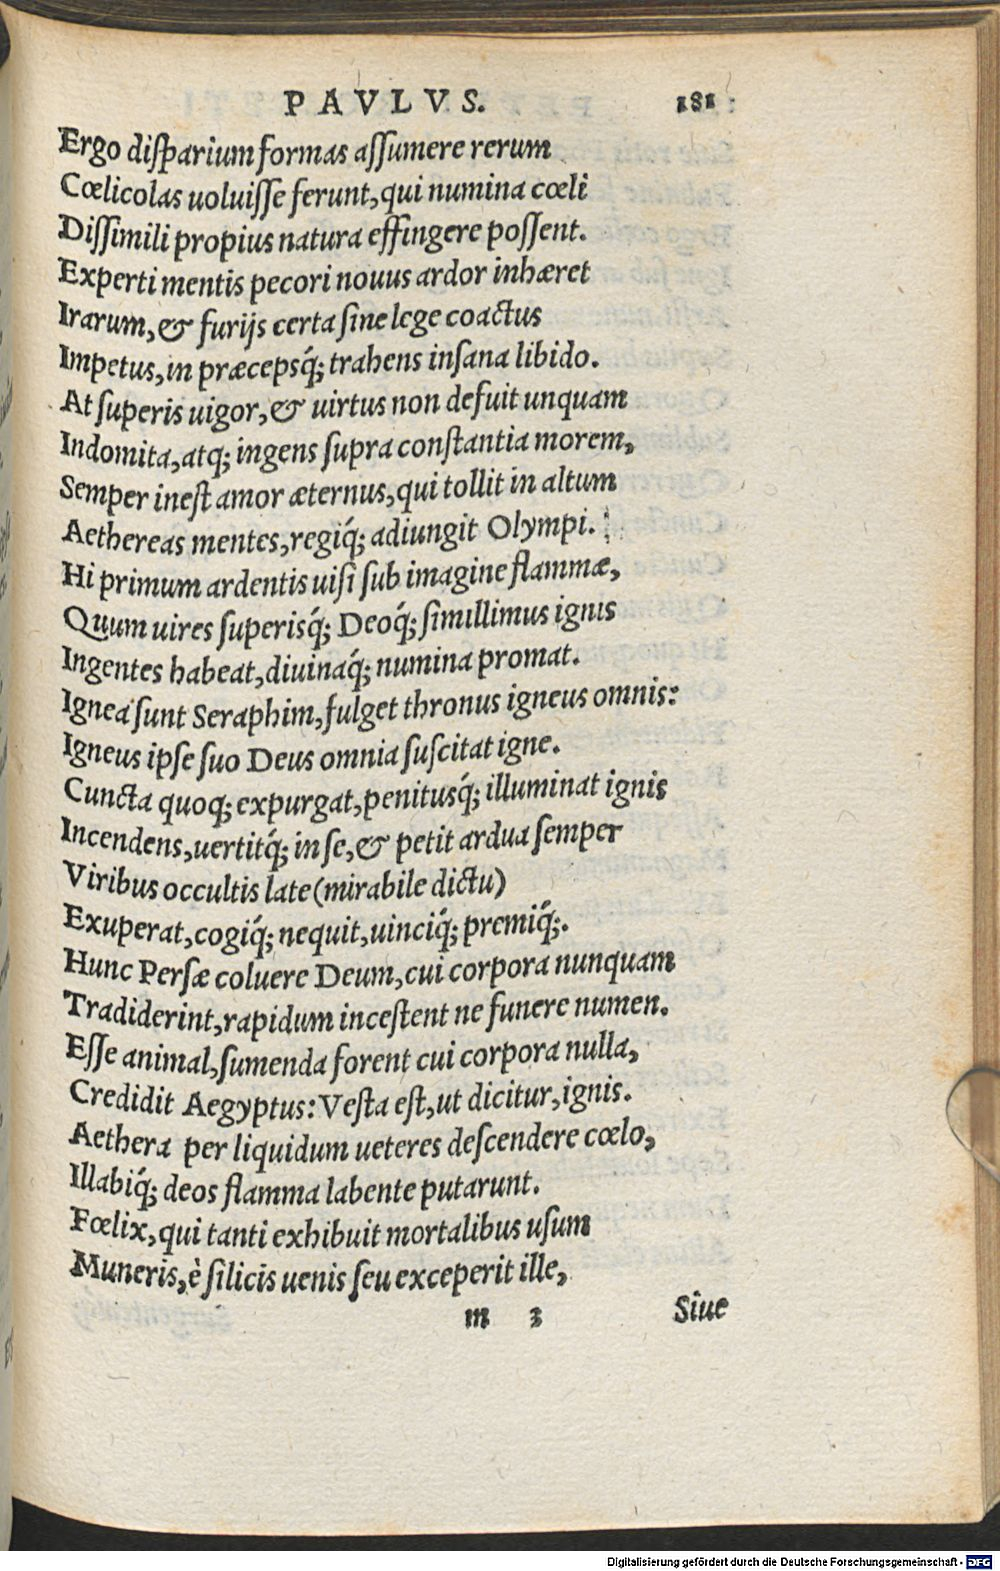 PAVLVS. 181
Ergo disparium formas assumere rerum
Cœlicolas uoluisse ferunt, qui numina cœli
Dissimili propius natura effingere possent.
Experti mentis pecori nouus ardor inhæret
Irarum, & furijs certa sine lege coactus
Impetus, in præcepsq́; trahens insana libido.
At superis uigor, & uirtus non defuit unquam
Indomita, atq; ingens supra constantia morem,
Semper inest amor æternus, qui tollit in altum
Aethereas mentes, regiq́; adiungit Olympi.
Hi primum ardentis uisi sub imagine flammæ,
Quum uires superisq́; Deoq́; simillimus ignis
Ingentes habeat, diuinaq́; numina promat.
Ignea sunt Seraphim, fulget thronus igneus omnis:
Igneus ipse suo Deus omnia suscitat igne.
Cuncta quoq; expurgat, penitusq́; illuminat ignis
Incendens, uertitq́; in se, & petit ardua semper
Viribus occultis late (mirabile dictu)
Exuperat, cogiq́; nequit, uinciq́; premiq́;.
Hunc Persæ coluere Deum, cui corpora nunquam
Tradiderint, rapidum incestent ne funere numen.
Esse animal, sumenda forent cui corpora nulla,
Credidit Aegyptus: Vesta est, ut dicitur, ignis.
Aethera per liquidum ueteres descendere cœlo,
Illabiq́; deos flamma labente putarunt.
Fœlix, qui tanti exhibuit mortalibus usum
Muneris, è silicis uenis seu exceperit ille,
m 3 Siue
Digitalisierung gefördert durch die Deutsche Forschungsgemeinschaft - DFG